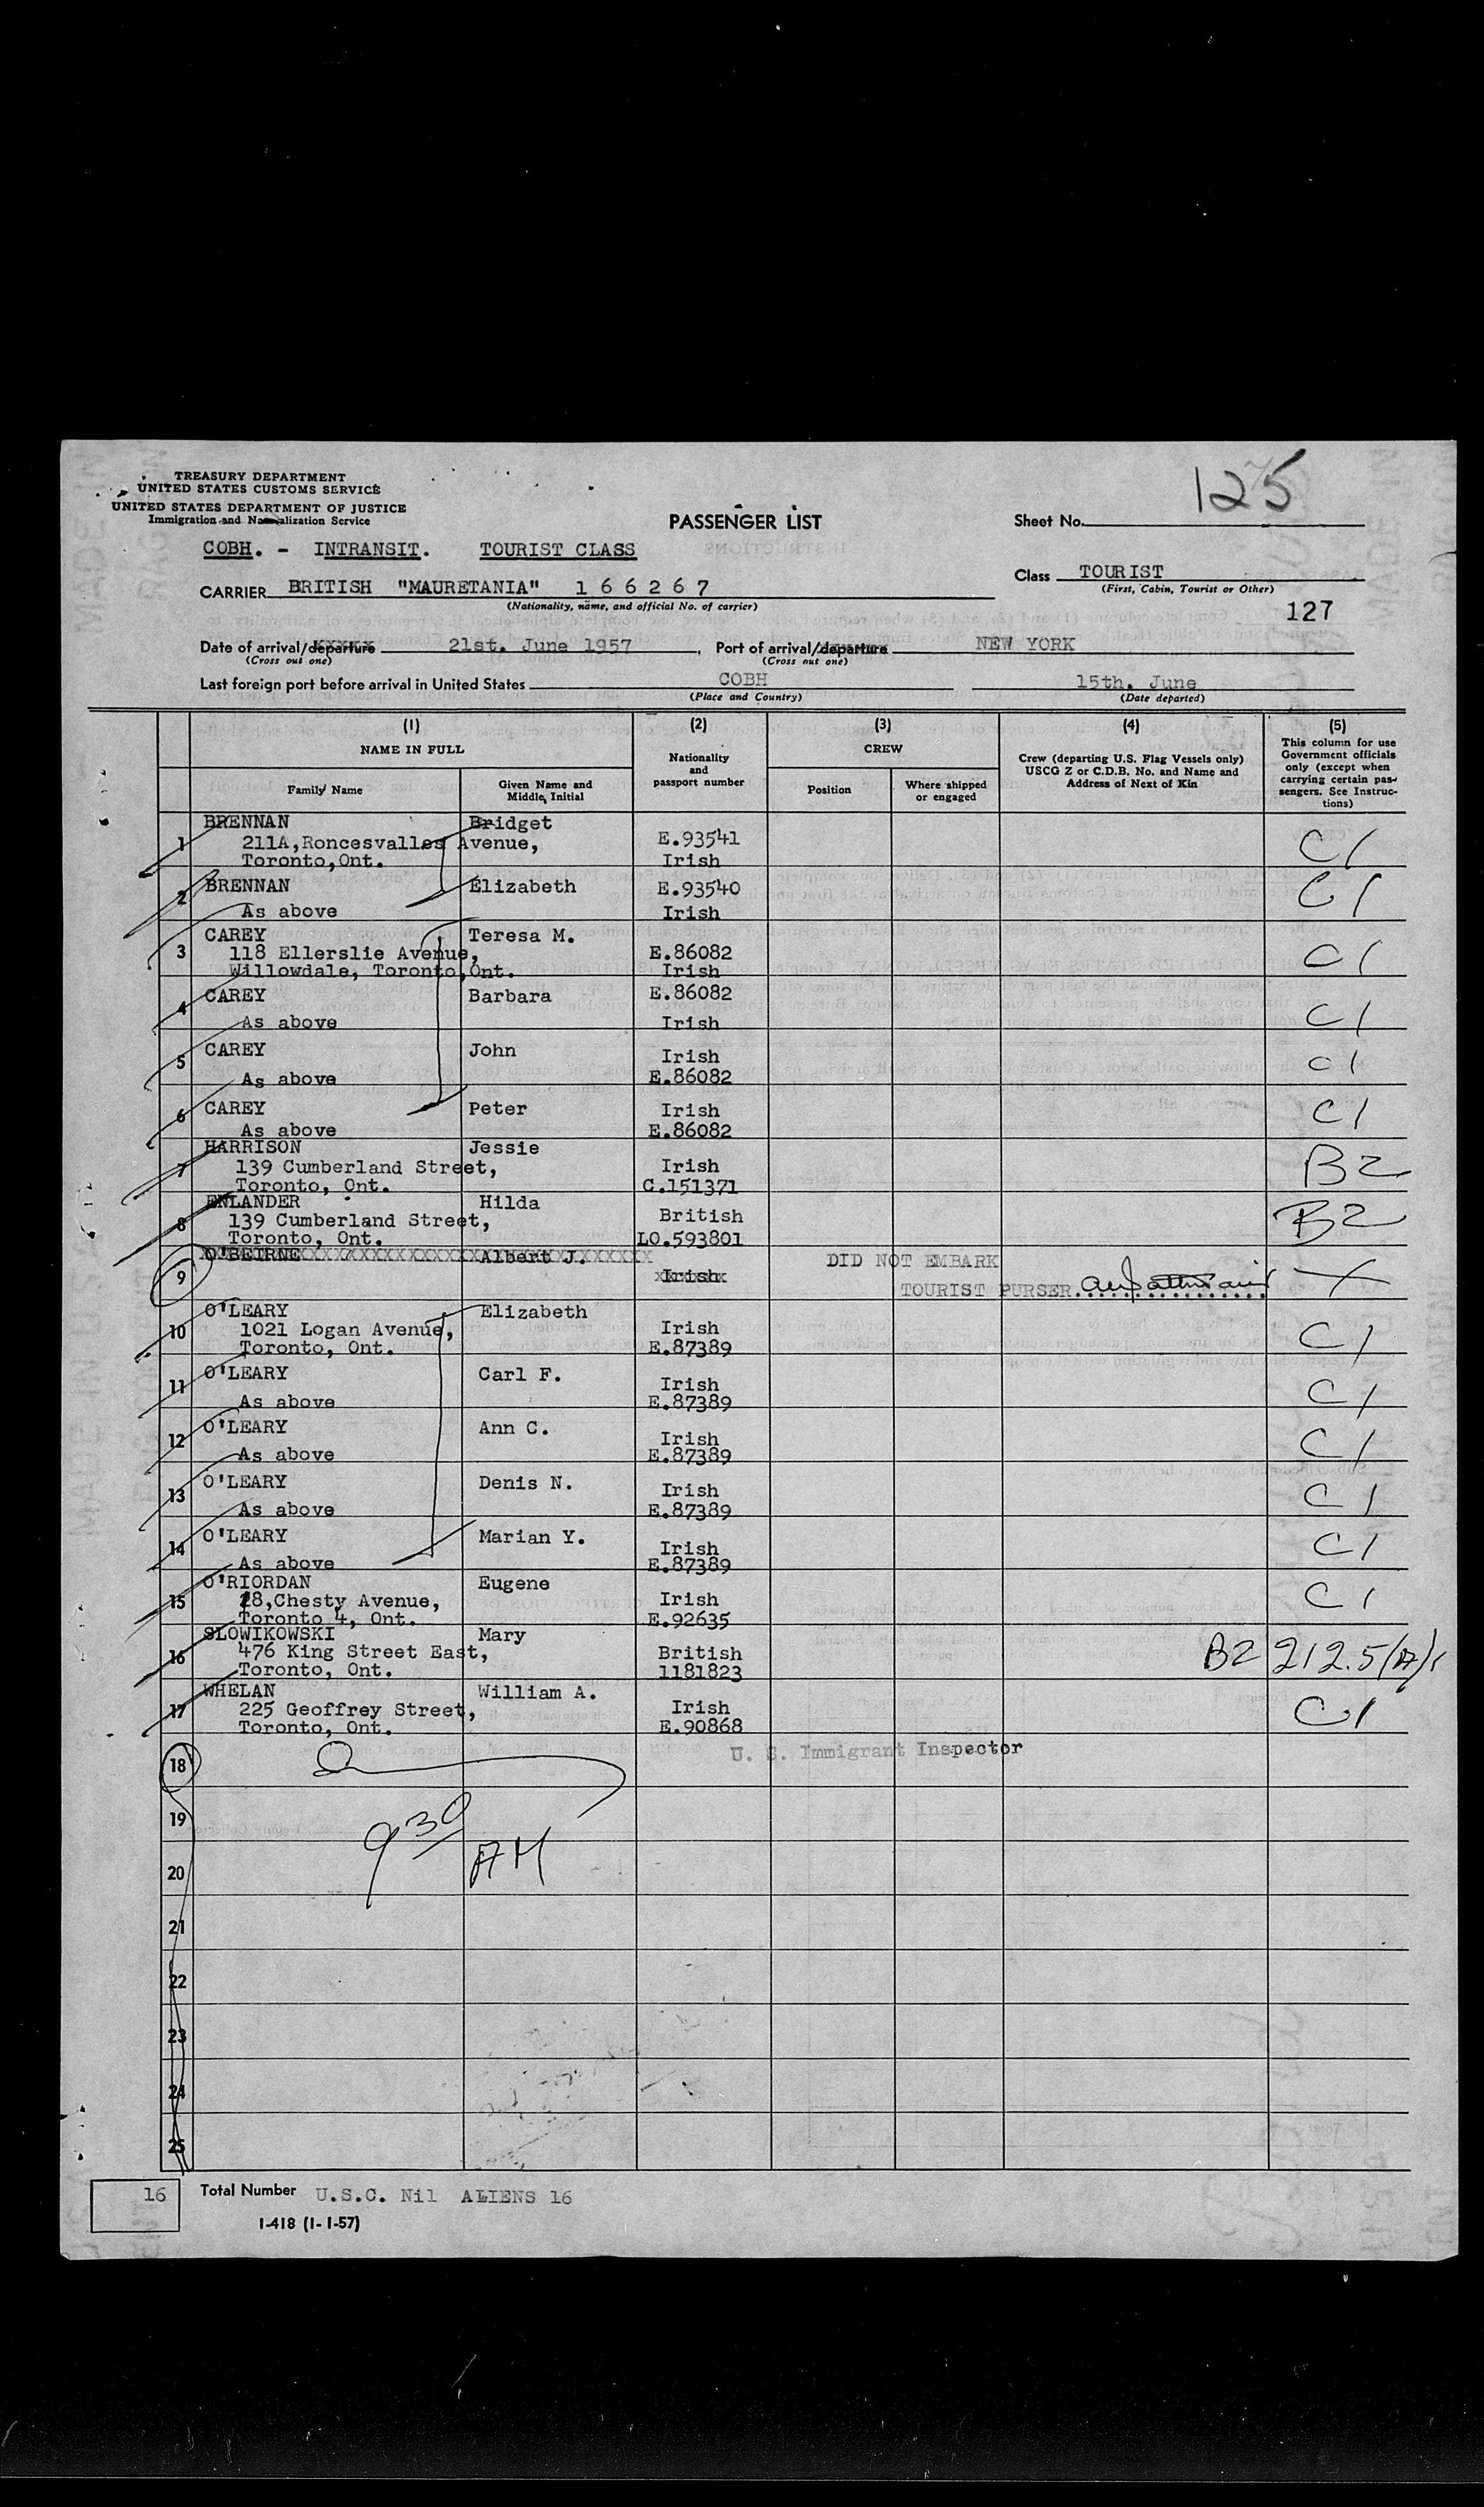 TREASURY DEPARTMENT
UNITED STATES CUSTOMS SERVICE
UNITED STATES DEPARTMENT OF JUSTICE
Immigration and Naturalization Service
125
PASSENGER LIST
Sheet No.
COBH. - INTRANSIT. TOURIST CLASS
Class TOURIST
(First, Cabin, Tourist or Other)
CARRIER BRITISH "MAURETANIA" 1 6 6 2 6 7
(Nationality, name, and official No. of carrier)
127
Date of arrival/departure 21st. June 1957, Port of arrival/departure NEW YORK
(Cross out one) (Cross out one)
Last foreign port before arrival in United States COBH 15th. June
(Place and Country) (Date departed)
(1) (2) (3) (4) (5)
NAME IN FULL
Family Name
Given Name and
Middle Initial
Nationality
and
passport number
CREW
Position
Where shipped
or engaged
Crew (departing U.S. Flag Vessels only)
USCG Z or C.D.B. No. and Name and
Address of Next of Kin
This column for use
Government officials
only (except when
carrying certain pas-
sengers. See Instruc-
tions)
1 BRENNAN Bridget
211A, Roncesvalles Avenue, E.93541 C1
Toronto, Ont. Irish
2 BRENNAN Elizabeth E.93540 C1
As above Irish
3 CAREY Teresa M.
118 Ellerslie Avenue, E.86082 C1
Willowdale, Toronto, Ont. Irish
4 CAREY Barbara E.86082
As above Irish C1
5 CAREY John Irish C1
As above E.86082
6 CAREY Peter Irish C1
As above E.86082
7 HARRISON Jessie
139 Cumberland Street, Irish B2
Toronto, Ont. C.151371
8 ENLANDER Hilda
139 Cumberland Street, British B2
Toronto, Ont. LO.593801
9 O'BEIRNE Albert J. DID NOT EMBARK
Irish TOURIST PURSER X
10 O'LEARY Elizabeth
1021 Logan Avenue, Irish C1
Toronto, Ont. E.87389
11 O'LEARY Carl F. Irish
As above E.87389 C1
12 O'LEARY Ann C. Irish
As above E.87389 C1
13 O'LEARY Denis N. Irish
As above E.87389 C1
14 O'LEARY Marian Y. Irish C1
As above E.87389
15 O'RIORDAN Eugene
18, Chesty Avenue, Irish C1
Toronto 4, Ont. E.92635
16 SLOWIKOWSKI Mary
476 King Street East, British B2 212.5(A)1
Toronto, Ont. 1181823
17 WHELAN William A.
225 Geoffrey Street, Irish C1
Toronto, Ont. E.90868
18 U. S. Immigrant Inspector
19
9 30 AM
20
21
22
23
24
25
16 Total Number U.S.C. Nil ALIENS 16
I-418 (1-1-57)